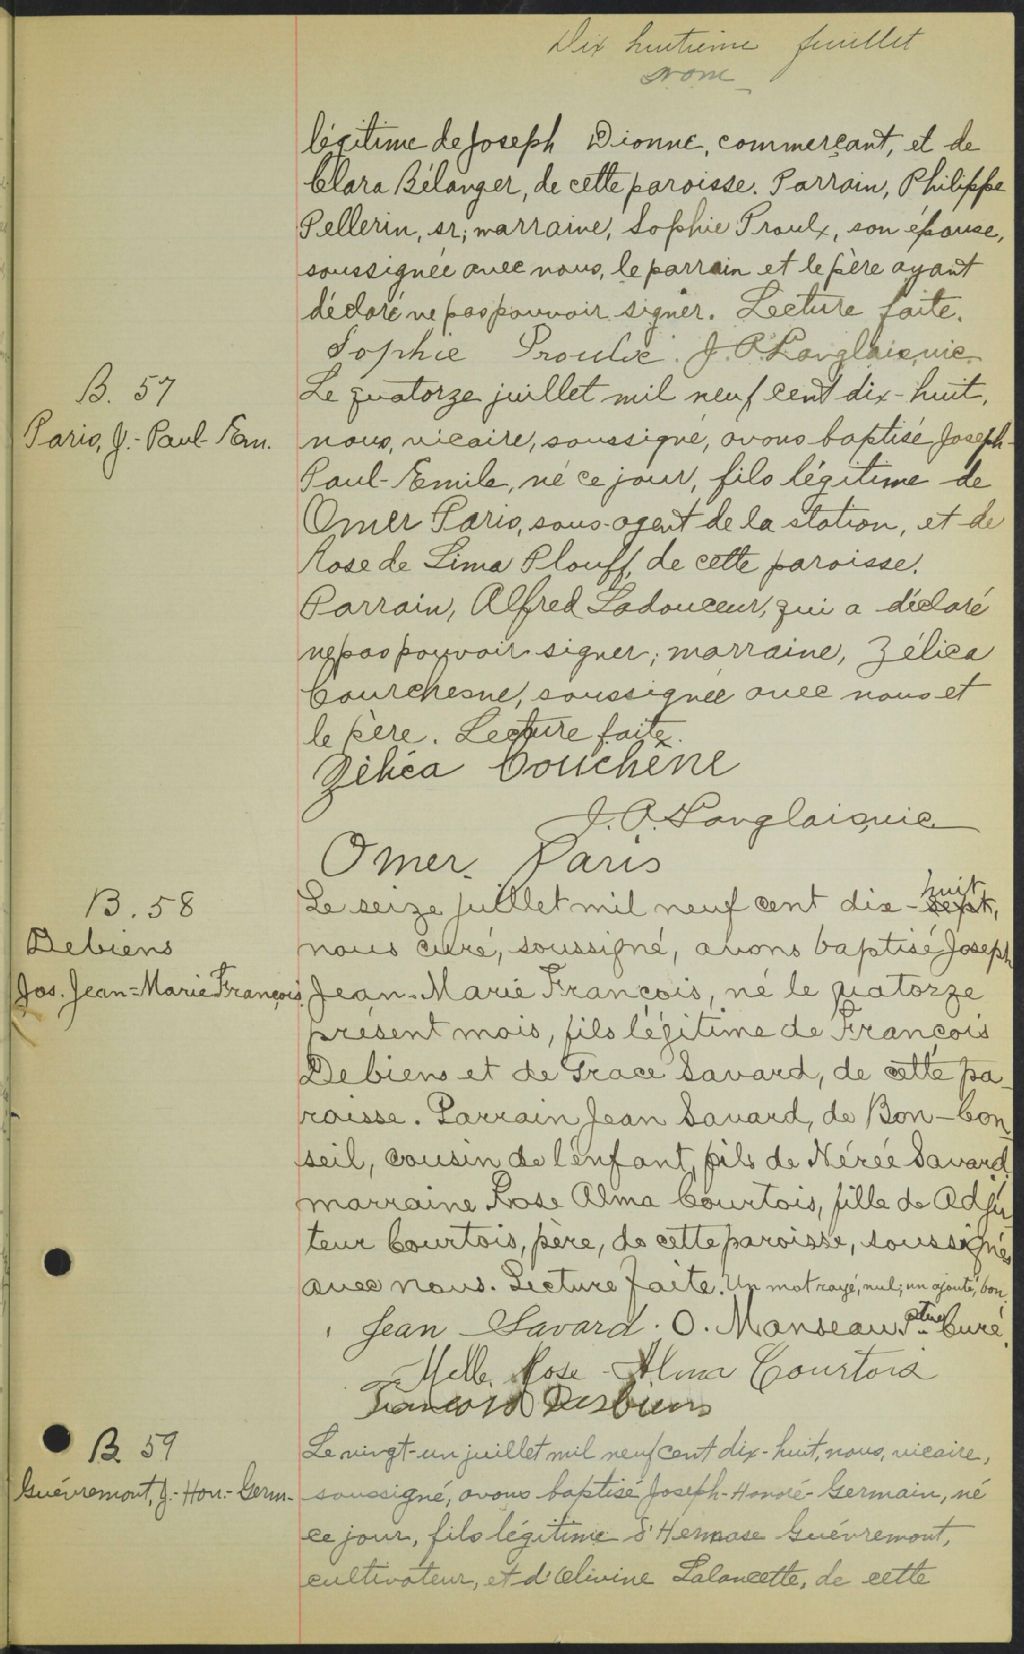 Dix huitième feuillet
légitime de Joseph Dionne, commerçant, et de
Clara Bélanger, de cette paroisse. Parrain, Philippe
Pellerin, sr; marraine, Sophie Proulx, son épouse,
soussignée avec nous, le parrain et le père ayant
déclaré ne pas pouvoir signer. Lecture faite.
Sophie Proulx J. A. Langlais, vic.
B. 57
Paris, J.-Paul-Em.
Le quatorze juillet mil neuf cent dix-huit,
nous, vicaire, soussigné, avons baptisé Joseph-
Paul-Emile, né ce jour, fils légitime de
Omer Paris, sous-agent de la station, et de
Rose de Lima Plouff, de cette paroisse.
Parrain, Alfred Ladouceur, qui a déclaré
ne pas pouvoir signer; marraine, Zélica
Courchesne, soussignée avec nous et
le père. Lecture faite.
Zélica Couchêne
J. A. Langlais, vic.
Omer Paris
B. 58
Debiens
Jos. Jean-Marie François
Le seize juillet mil neuf cent dix-sept, huit
nous curé, soussigné, avons baptisé Joseph
Jean-Marie François, né le quatorze
présent mois, fils légitime de François
Debiens et de Grace Savard, de cette pa-
roisse. Parrain Jean Savard, de Bon-Con-
seil, cousin de l'enfant, fils de Nérée Savard
marraine Rose Alma Courtois, fille de Adju
teur Courtois, père, de cette paroisse, soussignés
avec nous. Lecture faite. Un mot rayé, nul; un ajouté, bon.
Jean Savard. O. Manseau Ptre Curé.
Melle Rose-Alma Courtois
François Desbiens
B. 59
Guévremont, J.-Hon.-Germ.
Le vingt-un juillet mil neuf cent dix-huit, nous, vicaire,
soussigné, avons baptisé Joseph-Honoré-Germain, né
ce jour, fils légitime d'Hermase Guévremont,
cultivateur, et d'Olivine Lalancette, de cette